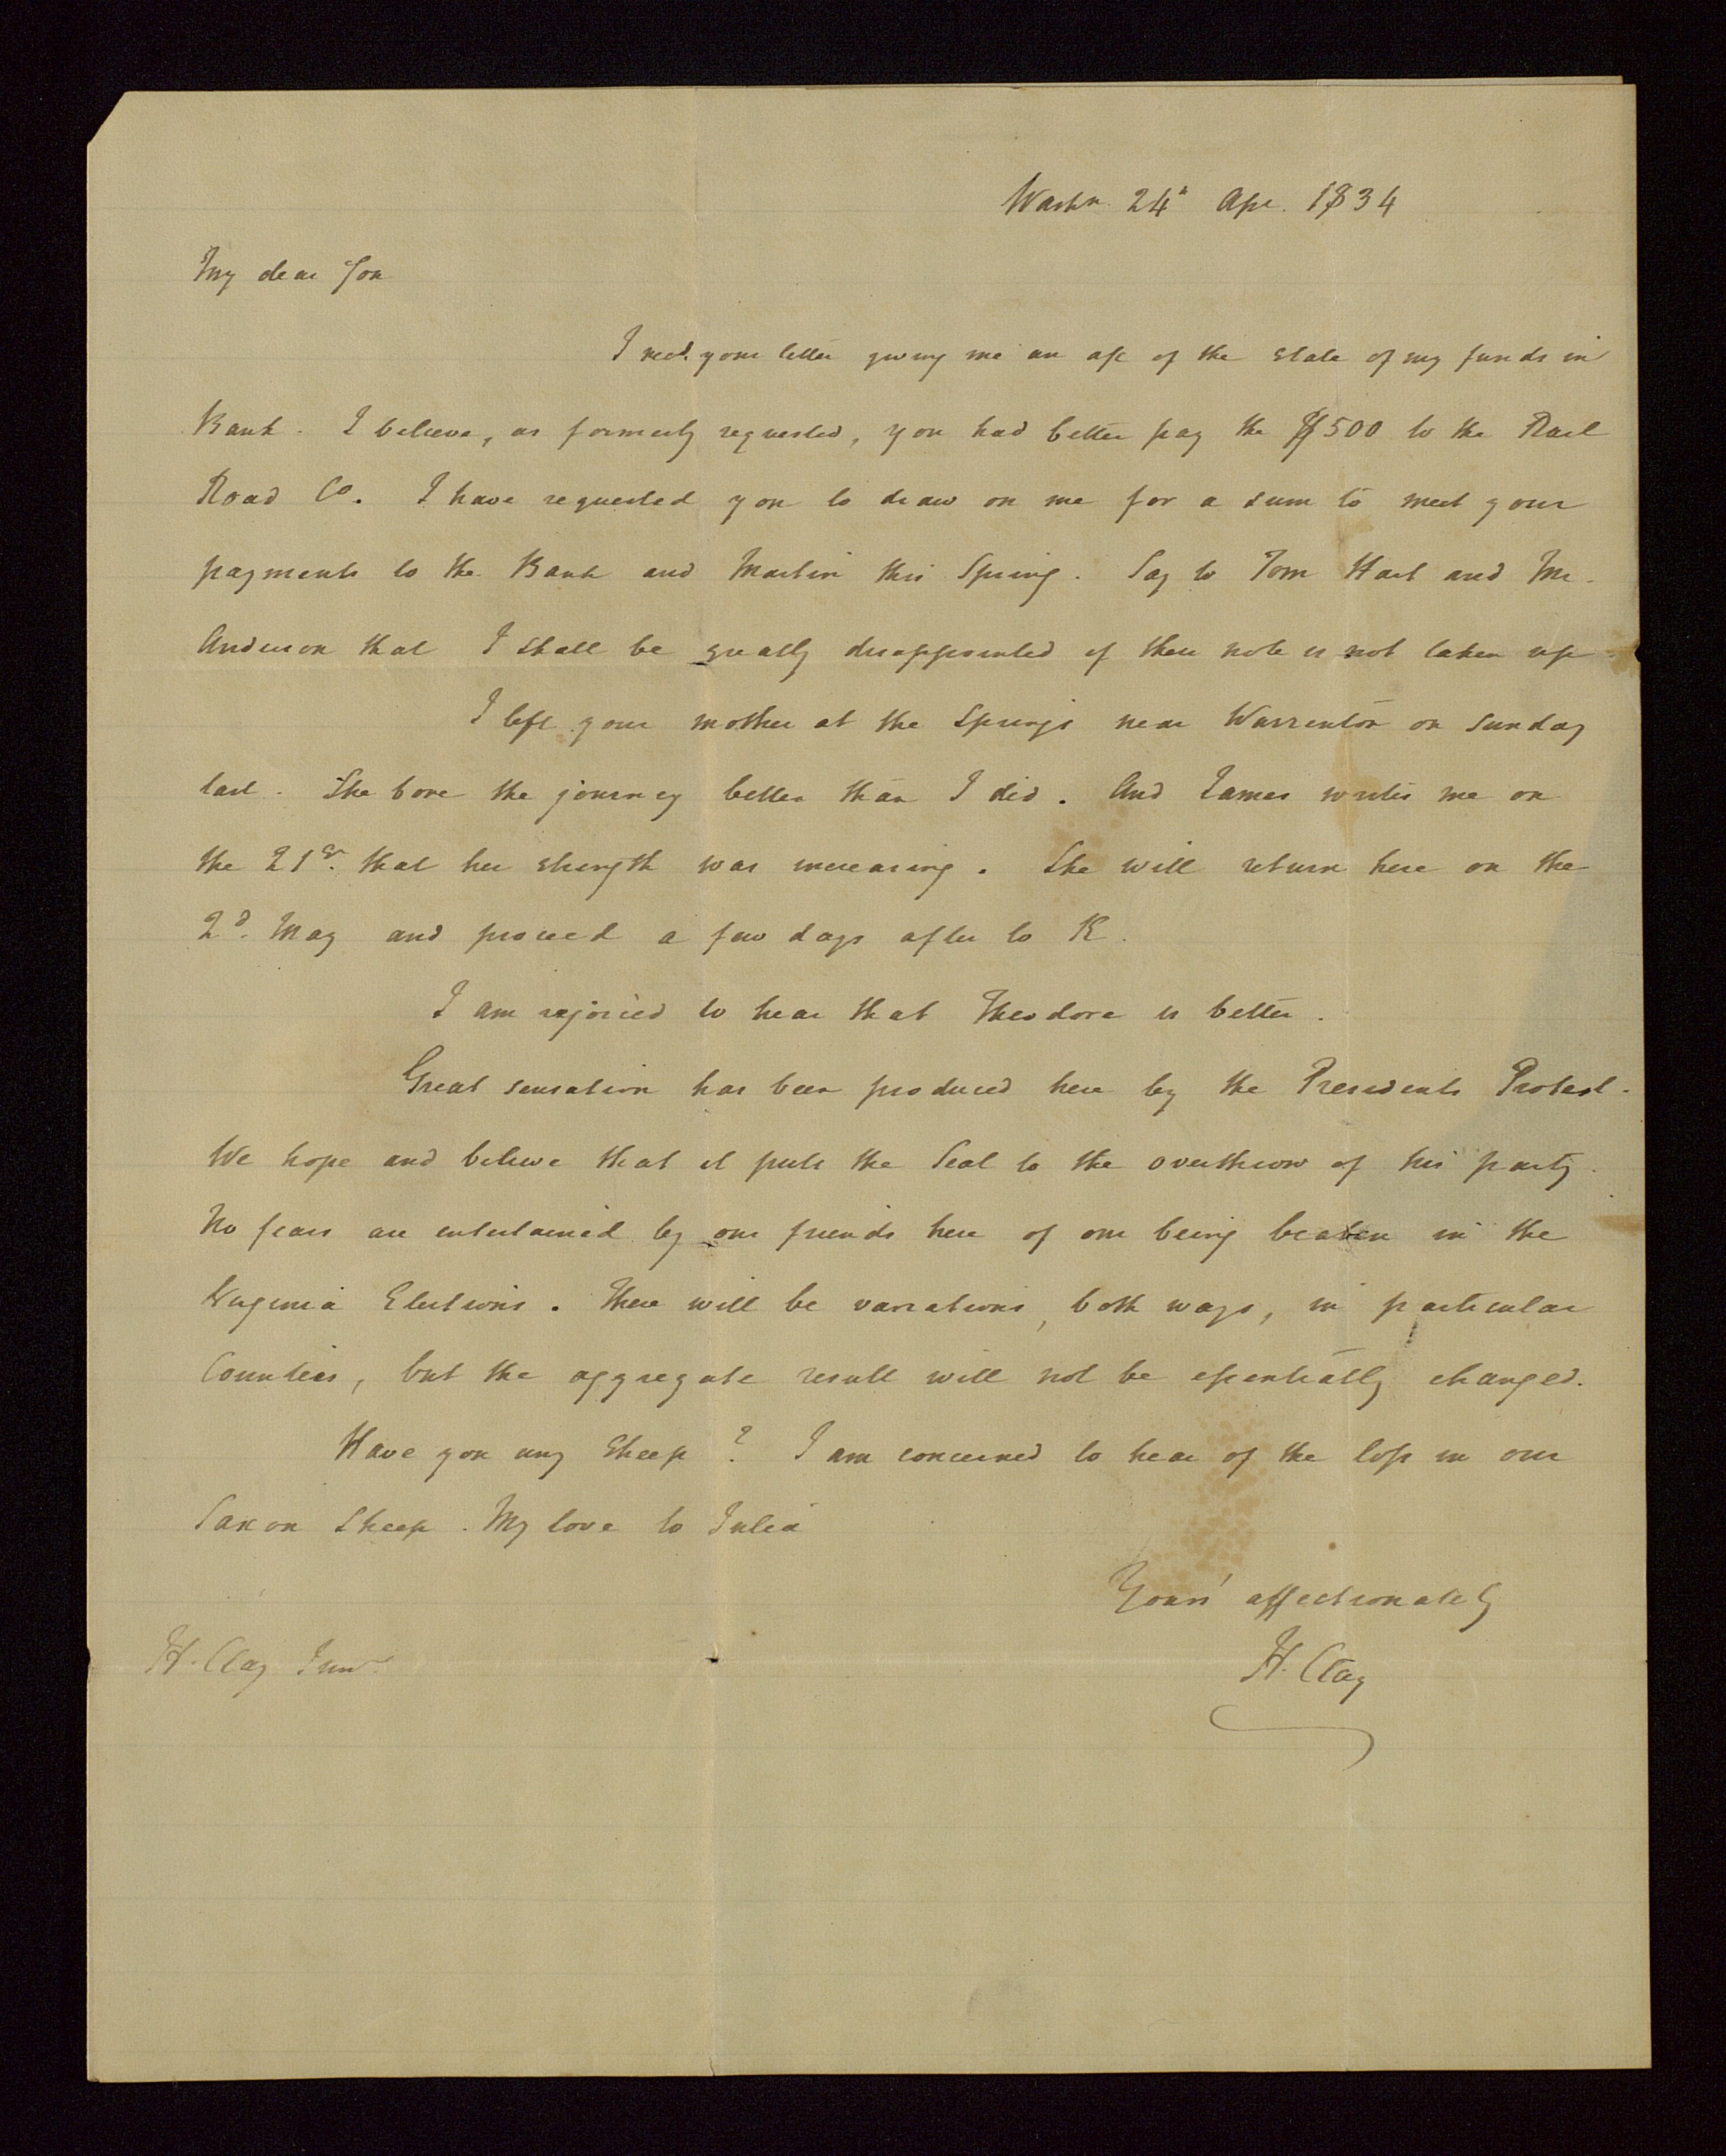 Washn. 24h Apl. 1834
My dear Son
I recd. your letter giving me an a/c of the state of my funds in
Bank. I believe, as formerly requested, you had better pay the $500 to the Rail
Road Co. I have requested you to draw on me for a sum to meet your
payments to the Bank and Martin this Spring. Say to Tom Hart and Mr.
Anderson that I shall be greatly disappointed if their note is not taken up
I left your mother at the Springs near Warrenton on Sunday
last. She bore the journey better than I did. And James writes me on
the 21st. that her strength was increasing. She will return here on the
2d. May and proceed a few days after to K.
I am rejoiced to hear that Theodore is better.
Great sensation has been produced here by the Presidents Protest.
We hope and believe that it puts the Seal to the overthrow of his party.
No fears are entertained by our friends here of our being beaten in the
Virginia Elections. There will be variations, both ways, in particular
Counties, but the aggregate result will not be essentially changed.
Have you any Sheep? I am concerned to hear of the loss in our
Saxon Sheep. My love to Julia
Yours' affectionately
H. Clay
H. Clay Junr.